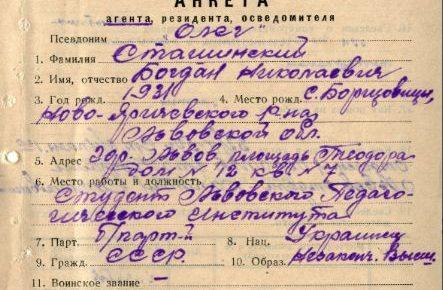 АНКЕТА
агента, резидента, осведомителя
Псевдоним „Олег"
1. Фамилия Сташинский
2. Имя, отчество Богдан Николаевич
3. Год рожд. 1931 4. Место рожд. с. Борщовицы,
Ново-Яричевского р-на,
Львовской обл.
5. Адрес гор. Львов, площадь Теодора
дом № 12 кв № 7
6. Место работы и должность
Студент Львовского Педаго-
гического Института
7. Парт. б/парт-й 8. Нац. Украинец
9. Гражд. СССР 10. Образ. Незакен. Высш.
11. Воинское звание —